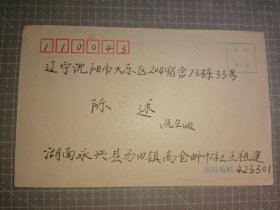 110043
辽宁沈阳市大东区204宿舍73栋33号
陈 述
先生收
湖南永兴县马田镇高仓邮币社王祖建
邮政编码:423301